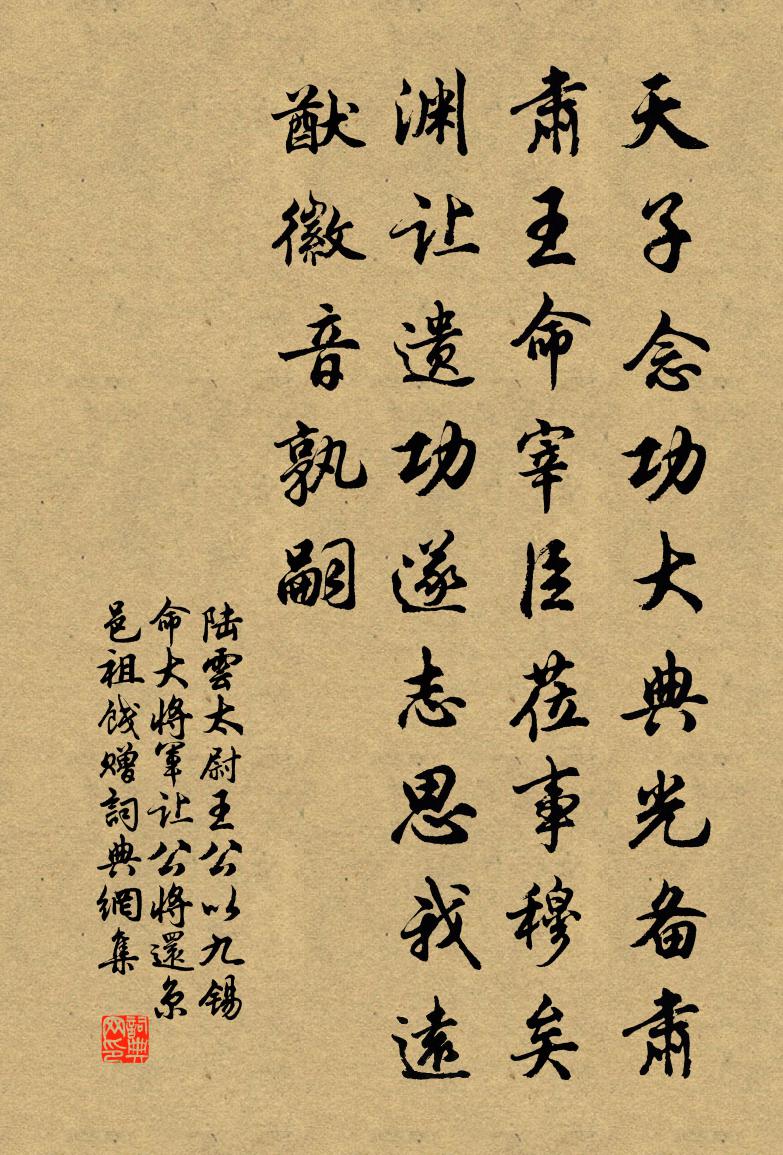 天子念功大典光备肃
肃王命宰臣莅事穆矣
渊让遗功遂志思我远
猷徽音孰嗣
陆雲太尉王公以九锡
命大将军让公将還京
邑祖饯赠詞典網集
詞典网印